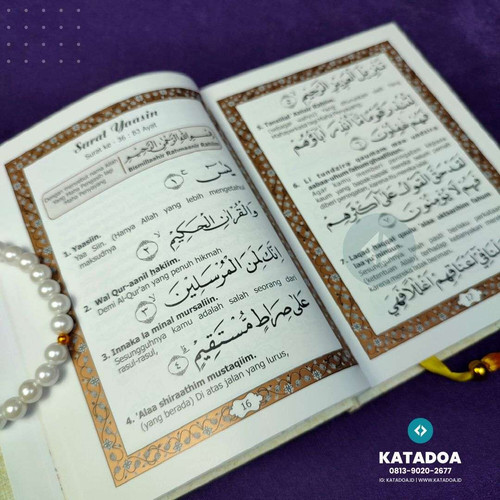 Surat Yaasin
Surat ke : 36 : 83 Ayat
Dengan menyebut nama Allah
Yang Maha Pengasih lagi
Maha Penyayang
بِسْمِ اللهِ الرَّحْمٰنِ الرَّحِيْمِ
Bismillaahir Rahmaanir Rahiim
يٰسٓ ۝١
1. Yaasiin.
Yaa Siin. (Hanya Allah yang lebih mengetahui
maksudnya
وَالْقُرْاٰنِ الْحَكِيْمِ ۝٢
2. Wal Qur-aanil hakiim.
Demi Al-Qur'an yang penuh hikmah
اِنَّكَ لَمِنَ الْمُرْسَلِيْنَ ۝٣
3. Innaka la minal mursaliin.
Sesungguhnya kamu adalah salah seorang dari
rasul-rasul,
عَلٰى صِرَاطٍ مُسْتَقِيْمٍ ۝٤
4. 'Alaa shiraathim mustaqiim.
(yang berada) Di atas jalan yang lurus,
16
تَنْزِيْلَ الْعَزِيْزِ الرَّحِيْمِ
5. Tanziilal 'Aziizir Rahiim.
لِتُنْذِرَ قَوْمًا مَّآ اُنْذِرَ اٰبَآؤُهُمْ
فَهُمْ غٰفِلُوْنَ
6. Li tundzira
لَقَدْ حَقَّ الْقَوْلُ عَلٰٓى اَكْثَرِهِمْ
فَهُمْ لَا يُؤْمِنُوْنَ
7. Laqad haqqal qaulu 'alaa aktsarihim fahum
اِنَّا جَعَلْنَا فِيْٓ اَعْنَاقِهِمْ اَغْلٰلًا فَهِيَ
17
KATADOA
0813-9020-2677
IG: KATADOA.ID | WWW.KATADOA.ID